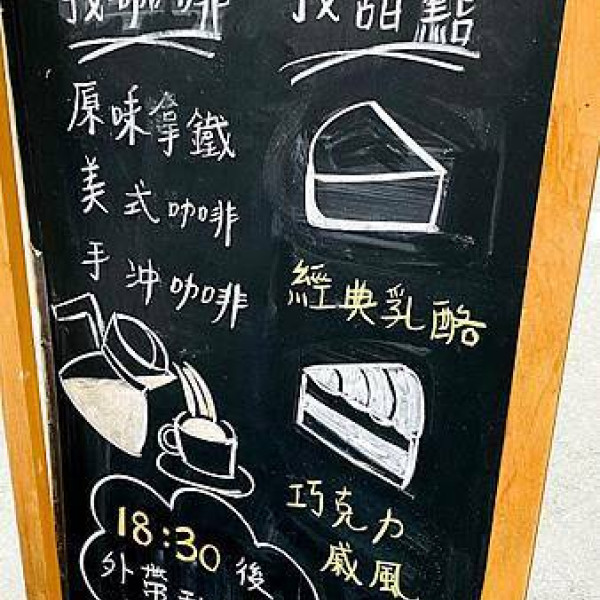 找咖啡
找甜點
原味拿鐵
美式咖啡
手沖咖啡
經典乳酪
巧克力
戚風
18:30後
外帶